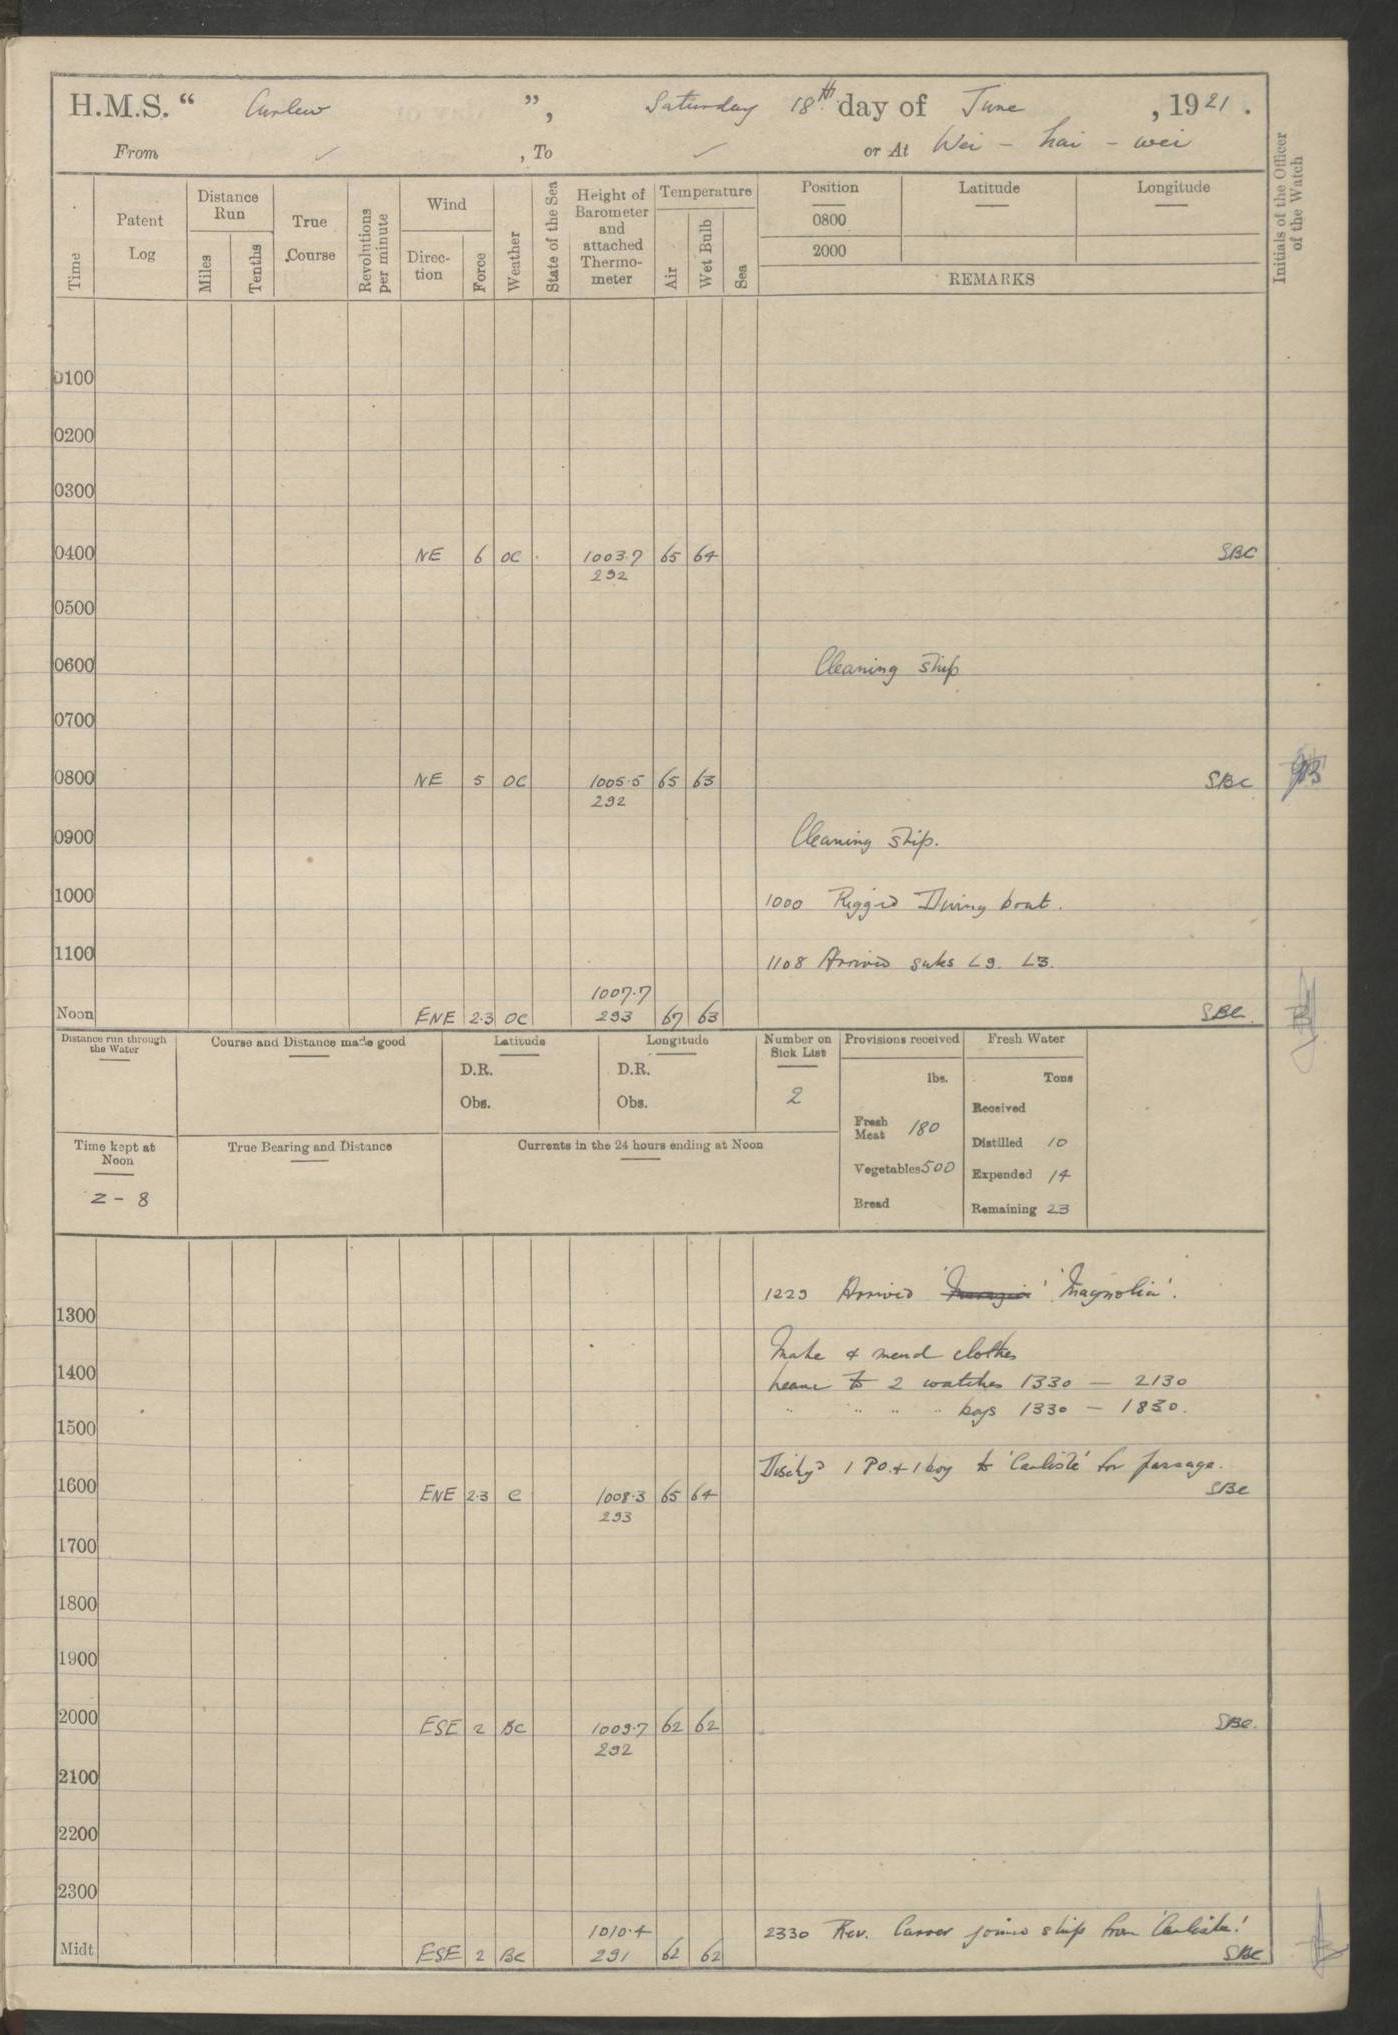 H.M.S. “ Curlew ”, Saturday 18th day of June , 1921 .
From ✓ , To ✓ or At Wei - hai - wei
Time
Patent Log
Distance Run
Miles
Tenths
True Course
Revolutions per minute
Wind
Direc-tion
Force
Weather
State of the Sea
Height of Barometer and attached Thermo-meter
Temperature
Air
Wet Bulb
Sea
Position Latitude Longitude
0800
2000
REMARKS
Initials of the Officer of the Watch
0100
0200
0300
0400 NE 6 OC 1003.7 65 64 SBC
292
0500
0600 Cleaning ship
0700
0800 NE 5 OC 1005.5 65 63 SBC
292
0900 Cleaning ship.
1000 1000 Rigged Diving boat.
1100 1108 Arrived subs L9. L3.
1007.7
Noon ENE 2.3 OC 293 67 63 SBC
Distance run through the Water
Course and Distance made good
Latitude
D.R.
Obs.
Longitude
D.R.
Obs.
Number on Sick List
2
Provisions received
lbs.
Fresh Meat 180
Vegetables 500
Bread
Fresh Water
Tons
Received
Distilled 10
Expended 14
Remaining 23
Time kept at Noon
Z - 8
True Bearing and Distance
Currents in the 24 hours ending at Noon
1229 Arrived 'Magnolia'.
1300
Make & mend clothes
1400 Leave to 2 watches 1330 - 2130
" " " " boys 1330 - 1830.
1500
Dischgd 1 PO. & 1 boy to 'Carlisle' for passage.
1600 ENE 2.3 C 1008.3 65 64 SBC
293
1700
1800
1900
2000 ESE 2 BC 1009.7 62 62 SBC.
292
2100
2200
2300
1010.4 2330 Rev. Carver joined ship from 'Carlisle'.
Midt ESE 2 BC 291 62 62 SBC